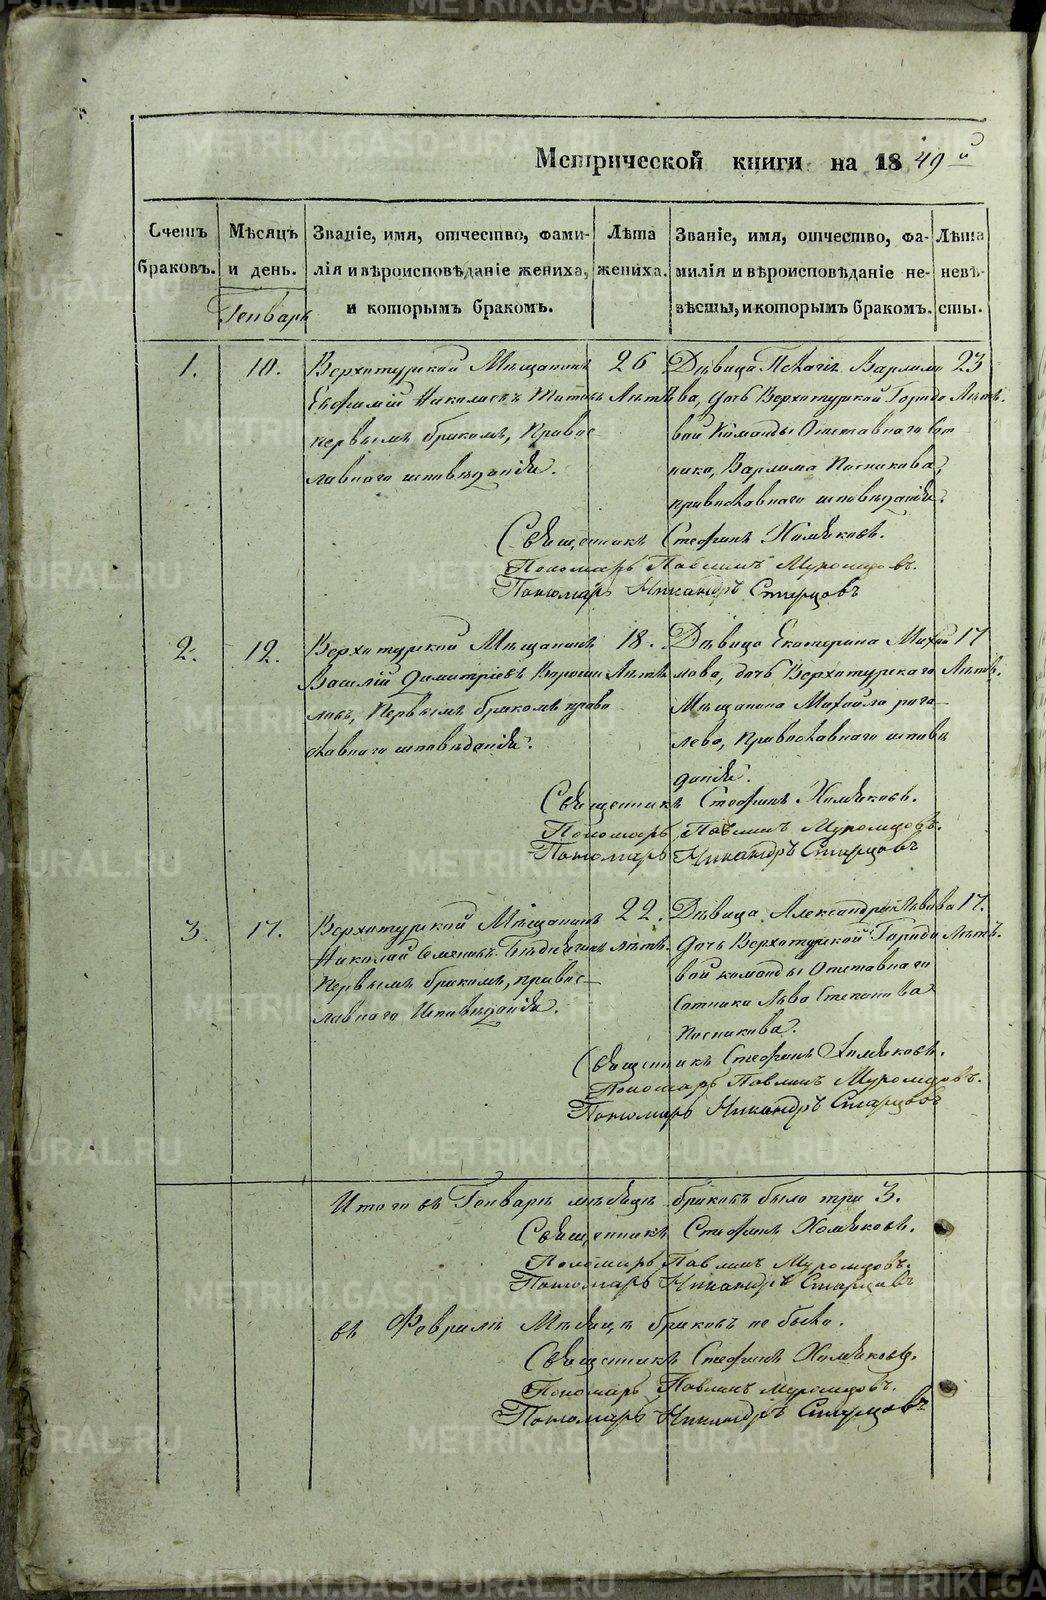 Метрической книги на 1849й
Счетъ браковъ.
Мѣсяцъ и день.
Генварь
Званіе, имя, отчество, фами-
лія и вѣроисповѣданіе жениха,
и которымъ бракомъ.
Лѣта
жениха.
Званіе, имя, отчество, фа-
милія и вѣроисповѣданіе не-
вѣсты, и которымъ бракомъ.
Лѣта
невѣ-
сты.
1.
10.
Верхотурской Мѣщанинъ
Евфимій Николаевъ
первымъ бракомъ, Правос
лавнаго исповѣданія.
26
Лѣтъ
Дѣвица Пелагія Варламо
ва, дочь Верхотурской Городо
вой Команды Отставнаго Сот
ника, Варлама Посникова,
православнаго исповѣданія.
23
Лѣтъ.
Священникъ Стефанъ Хомяковъ.
Пономарь Павлинъ Муромцовъ.
Пономарь Никандръ Старцовъ
2.
12.
Верхотурской Мѣщанинъ
Василій Димитріевъ Вороши
ловъ, Первымъ бракомъ право
славнаго исповѣданія.
18.
Лѣтъ
Дѣвица Екатерина Михай
лова, дочь Верхотурскаго
Мѣщанина Михайла рага-
лева, Православнаго исповѣ
данія.
17
Лѣтъ.
Священникъ Стефанъ Хомяковъ.
Пономарь Павлинъ Муромцовъ.
Пономарь Никандръ Старцовъ
3.
17.
Верхотурской Мѣщанинъ
Николай Семеновъ
Первымъ бракомъ, правос-
лавнаго Исповѣданія.
22.
лѣтъ.
Дѣвица Александра Львова
дочь Верхотурской Городо
вой команды Отставнаго
Сотника Льва Степанова
Посникова.
17.
Лѣтъ.
Священникъ Стефанъ Хомяковъ.
Пономарь Павлинъ Муромцовъ.
Пономарь Никандръ Старцовъ
Итого въ Генварѣ мѣсяцѣ браковъ было три 3.
Священникъ Стефанъ Хомяковъ.
Пономарь Павлинъ Муромцовъ.
Пономарь Никандръ Старцовъ
въ Февралѣ Мѣсяцѣ браковъ не было.
Священникъ Стефанъ Хомяковъ.
Пономарь Павлинъ Муромцовъ.
Пономарь Никандръ Старцовъ
METRIKI.GASO-URAL.RU